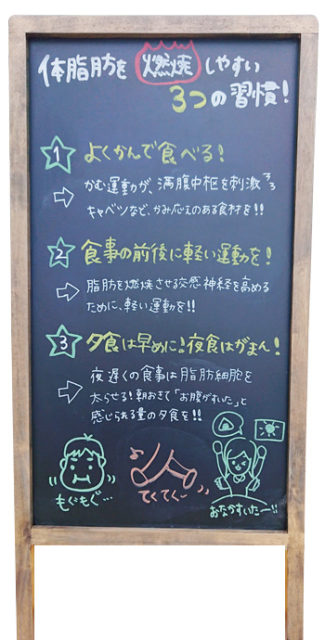 体脂肪を燃焼しやすい
3つの習慣！
1 よくかんで食べる！
かむ運動が、満腹中枢を刺激する
キャベツなど、かみ応えのある食材を！！
2 食事の前後に軽い運動を！
脂肪を燃焼させる交感神経を高める
ために、軽い運動を！！
3 夕食は早めに！夜食はがまん！
夜遅くの食事は脂肪細胞を
太らせる！朝おきて「お腹がすいた」と
感じられる量の夕食を！！
もぐもぐ…
てくてく…
おなかすいたー！！